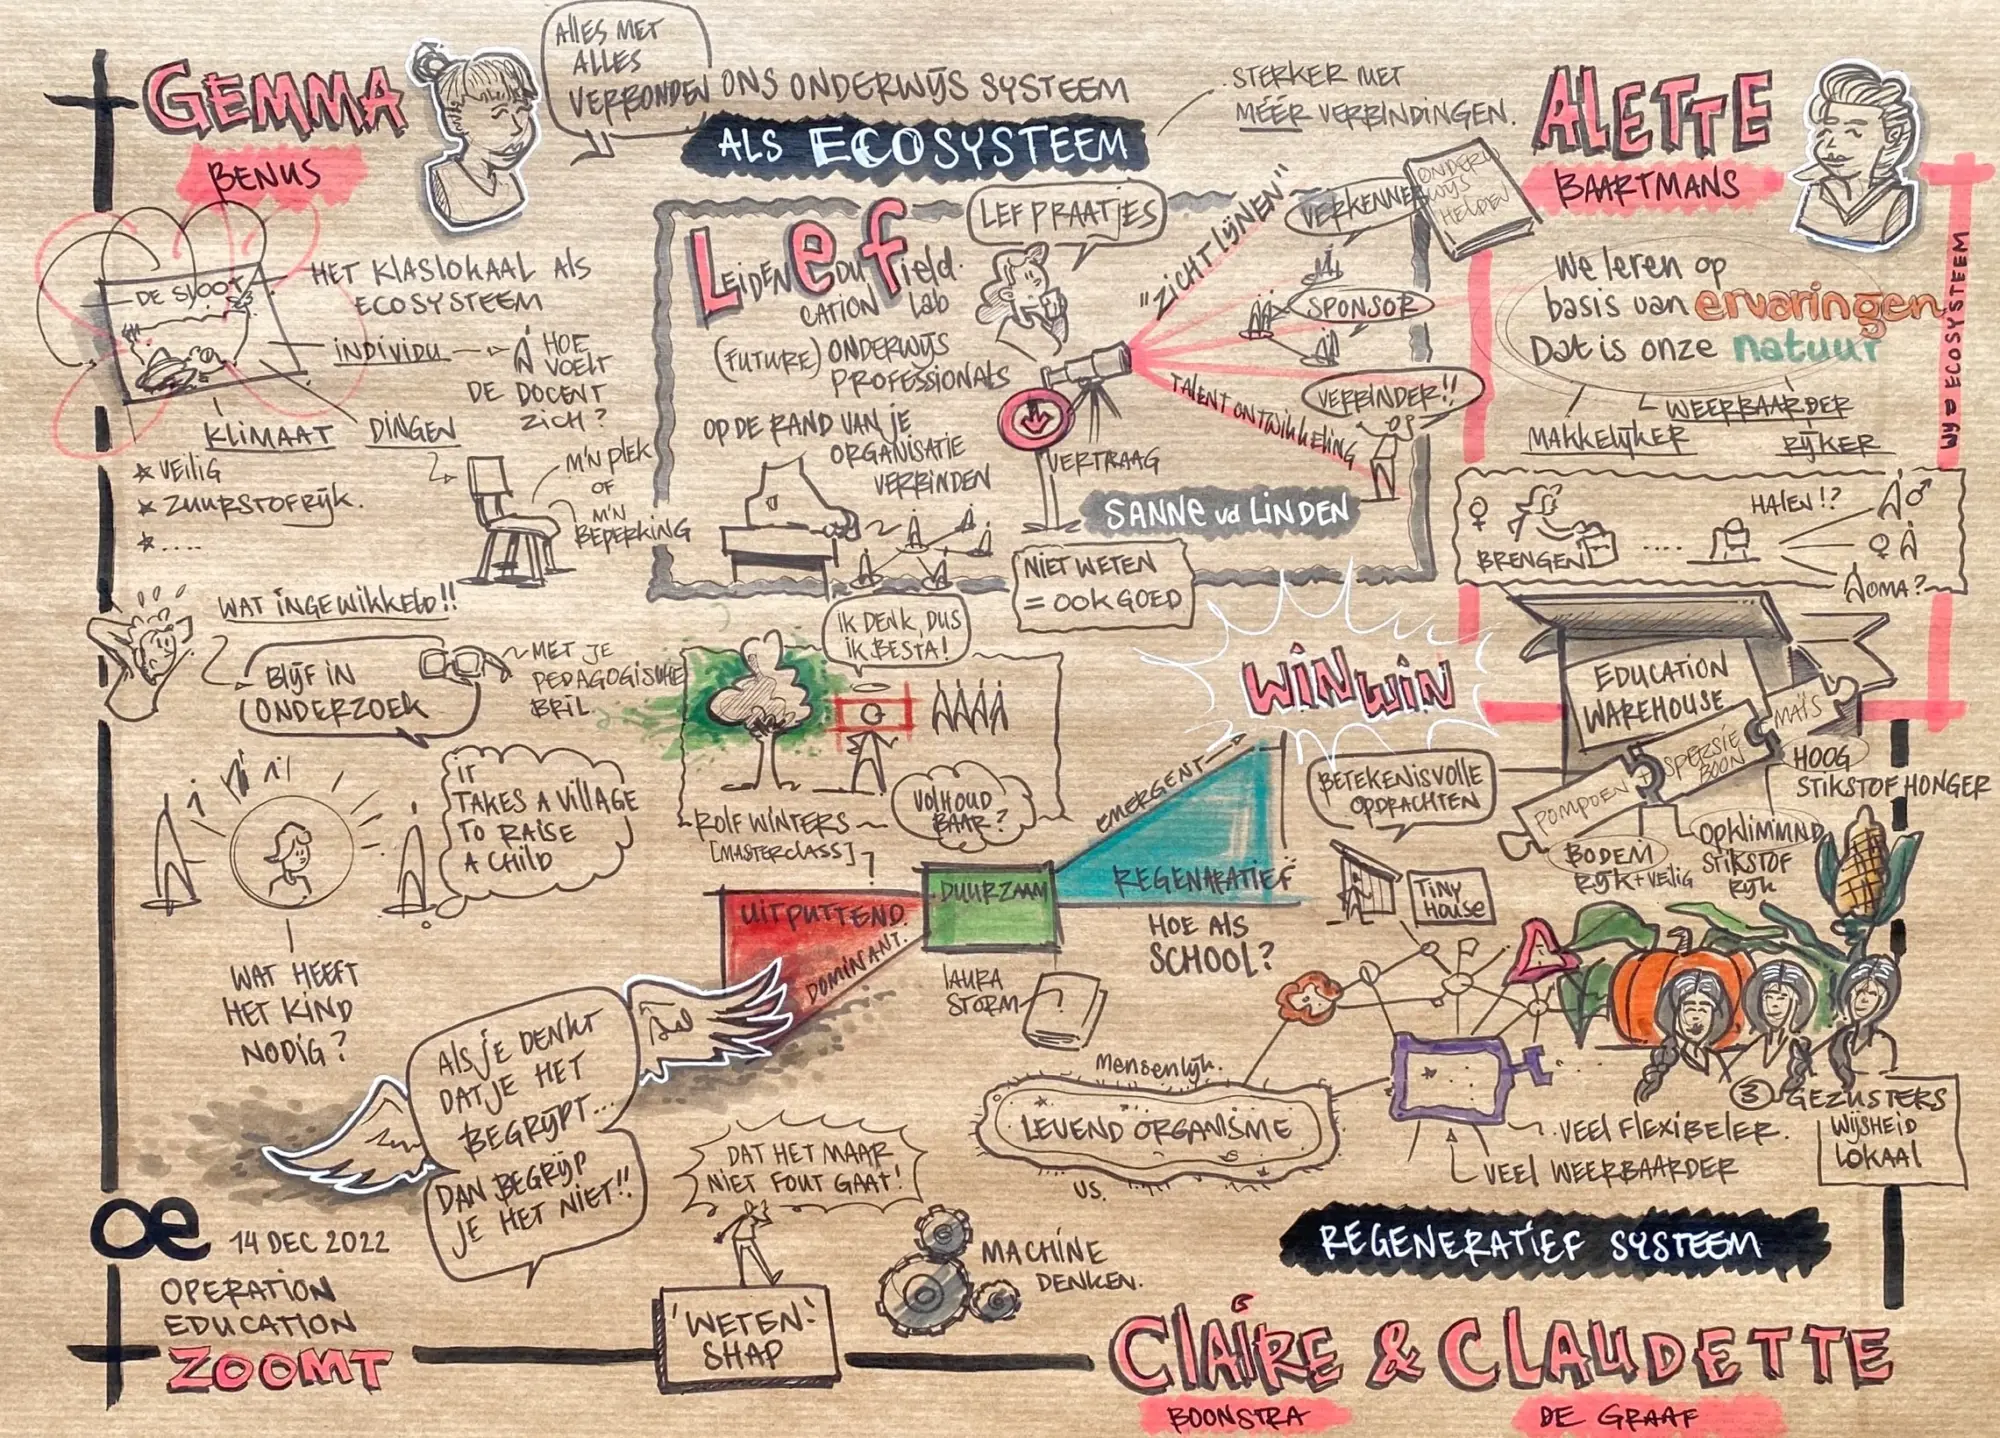 GEMMA
BENUS
ALLES MET
ALLES
VERBONDEN
ONS ONDERWIJS SYSTEEM
ALS ECOSYSTEEM
STERKER MET
MÉÉR VERBINDINGEN.
ALETTE
BAARTMANS
DE SLOOT
HET KLASLOKAAL ALS
ECOSYSTEEM
INDIVIDU
HOE
VOELT
DE DOCENT
ZICH?
KLIMAAT
DINGEN
* VEILIG
* ZUURSTOFRIJK.
* ....
M'N PLEK
OF
M'N
BEPERKING
LEIDEN EDU FIELD.
CATION LAB
(FUTURE) ONDERWIJS
PROFESSIONALS
OP DE RAND VAN JE
ORGANISATIE
VERBINDEN
LEF PRAATJES
"ZICHTLIJNEN"
VERKENNER
SPONSOR
VERBINDER!!
TALENT ONTWIKKELING
VERTRAAG
SANNE VD LINDEN
NIET WETEN
= OOK GOED
ONDER
WIJS
HELDEN
We leren op
basis van ervaringen
Dat is onze natuur
MAKKELIJKER
WEERBAARDER
RIJKER
WIJ = ECOSYSTEEM
BRENGEN
....
HALEN!?
OMA?
WAT INGEWIKKELD!!
BLIJF IN
ONDERZOEK
MET JE
PEDAGOGISCHE
BRIL.
IT
TAKES A VILLAGE
TO RAISE
A CHILD
WAT HEEFT
HET KIND
NODIG?
IK DENK, DUS
IK BESTA!
ROLF WINTERS
[MASTERCLASS]
VOLHOUD
BAAR?
WIN WIN
EDUCATION
WAREHOUSE
POMPOEN
+ SPERSIE
BOON
MAÏS
HOOG
STIKSTOF HONGER
OPKLIMMND
STIKSTOF
RIJK
BODEM
RIJK + VEILIG
BETEKENISVOLLE
OPDRACHTEN
TINY
HOUSE
UITPUTTEND.
DOMINANT.
DUURZAAM
EMERGENT
REGENARATIEF
HOE ALS
SCHOOL?
LAURA
STORM
ALS JE DENKT
DAT JE HET
BEGRIJPT...
DAN BEGRIJP
JE HET NIET!!
Mensenlijk.
LEVEND ORGANISME
VS.
VEEL FLEXIBELER.
VEEL WEERBAARDER
3 GEZUSTERS
WIJSHEID
LOKAAL
DAT HET MAAR
NIET FOUT GAAT!
'WETEN'
SHAP
MACHINE
DENKEN.
REGENERATIEF SYSTEEM
oe
14 DEC 2022
OPERATION
EDUCATION
ZOOMT
CLAIRE & CLAUDETTE
BOONSTRA
DE GRAAF